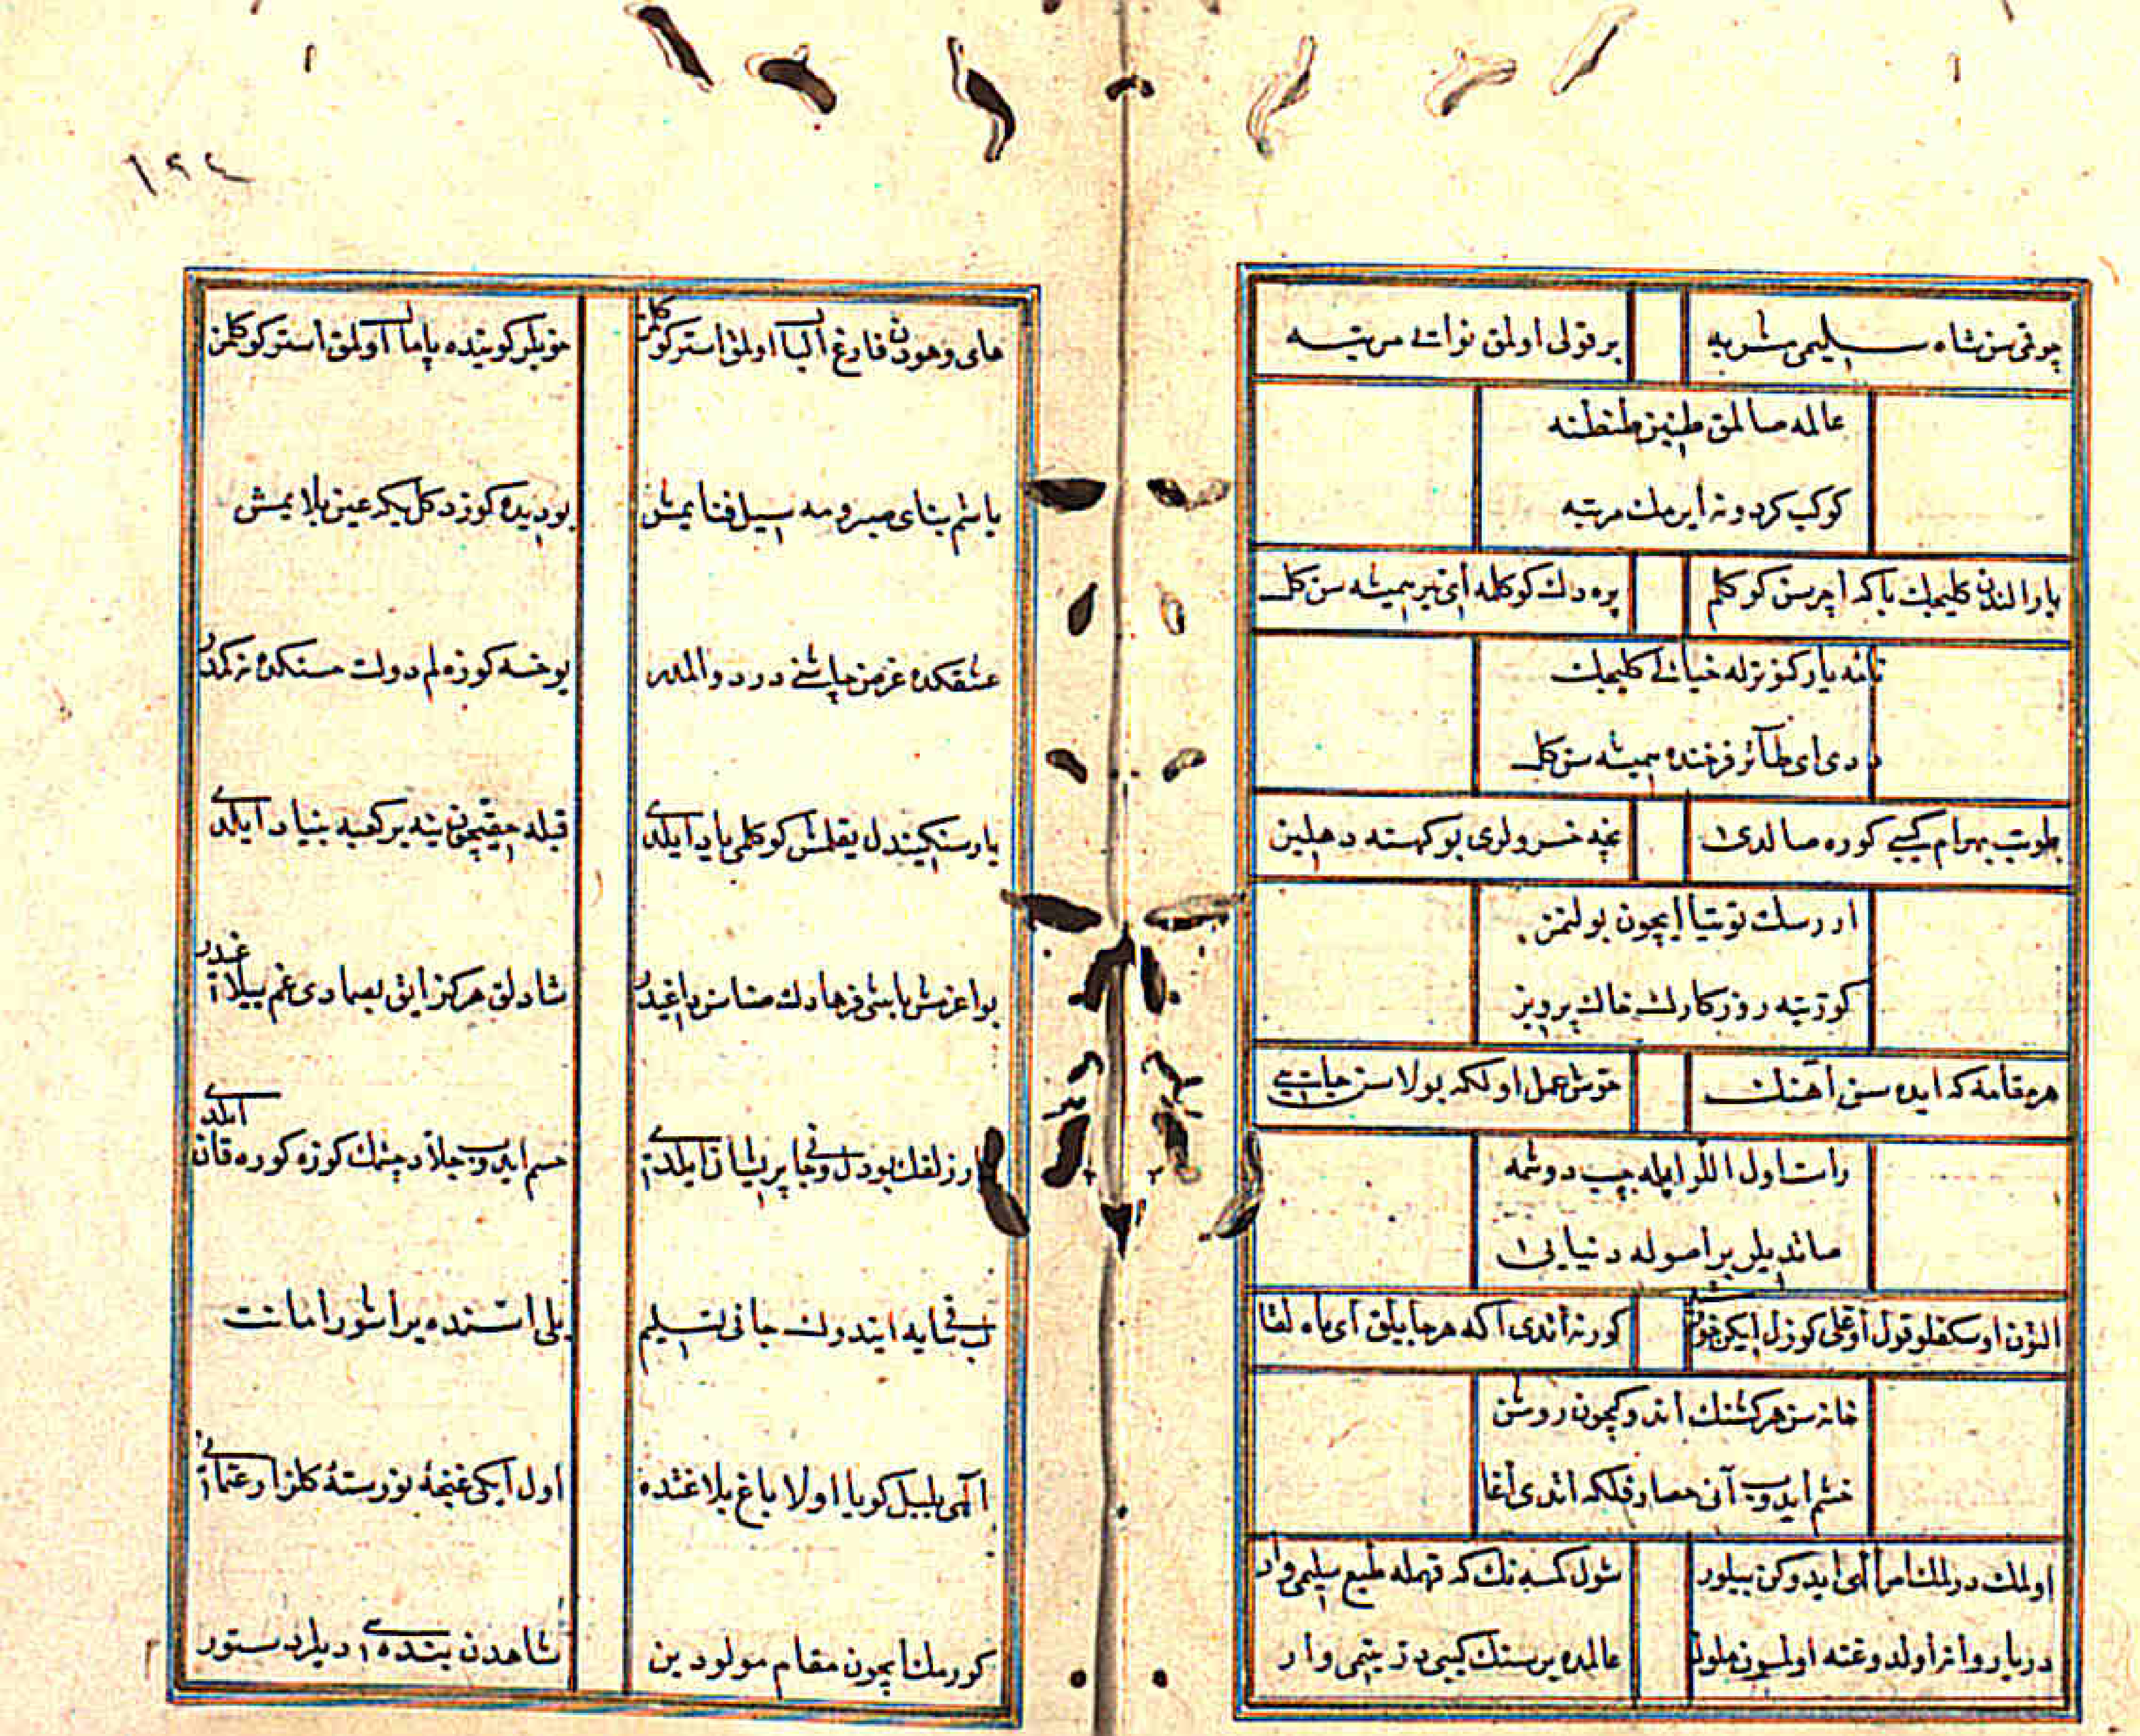 چوقی سن شاه سلیمی مشربه
بر قولی اولمق نوائے مرتبه
عالمه صالمق طنین طنطنه
کوکب کردونه ایرمك مرتبه
یار الندن کلیجك باکه اچرسن کوکلم
یره دك کوکلمه ای تیر همیشه سن کل
نامه یار کنورله خیالے کلیجك
دیدی ای طائر فرخنده همیشه سن کل
طوتب بهرام کیبی کوره صالدی
نیچه خسرولری بو کهنه دهلیز
اررسك توتیا ایچون بولنمز
کوزیته روزکارك خاك پرویز
هر مقامه که ایده سن آهنك
خوش عمل اولکه بولاسن
راست اول اللر ایله چپ دوشمه
صاندیلر بر اصوله دنیایی
التون اوسکفلو قول اوغلی کوزل ایکن
کورنه اتدی اکه هر جاییلق ای ماه لقا
خانه سن هر کشنك اندوکیچون روشن
خشم ایدوب آنی حصار فلکه اتدی اغا
اولمك دریلمك امر الهی ایدوکن بیلور
شول کمسه نك که فهمله طبع سلیمی وار
در یار وانر اولدوغنه اولمسون ملول
عالمده بر سنك کیبی در یتیمی وار
۱۲٤
های و هودن فارغ البال اولمق استر کوکلمز
خوبلر کوینده پامال اولمق استر کوکلمز
یاشم بنای صبرومه سیل فنا یمش
بو دیده کوز دکل یکر عین بلا یمش
عشقکده غرض چاشنئ درد و المدر
یوخسه کوزه لم دولت حسنکده نه کمدر
یار سنکین دل یقلمش کوکلمی یاد ایلدی
قبله حقیچون ینه بر کعبه بنیاد ایلدی
بو اغرمش باشی فرهادك صناسن طاغیدر
شادلق هرکز ایاق بصمادی غم ییلاغیدر
زلفك بو دل و جانی پریشان ایلدی
خشم ایدوب جلاد چشمك کوزه کوره قان ایلدی
لب شایه ایتدوك جانی تسلیم
یلی اتشنده بر اشور امانت
الهی بلبل کویا اولا باغ بلاغتده
اول ایکی غنچهٔ نورستهٔ کلزار عثمانی
کورمك ایچون مقام مولودین
شاهدن بنده سی دیلر دستور